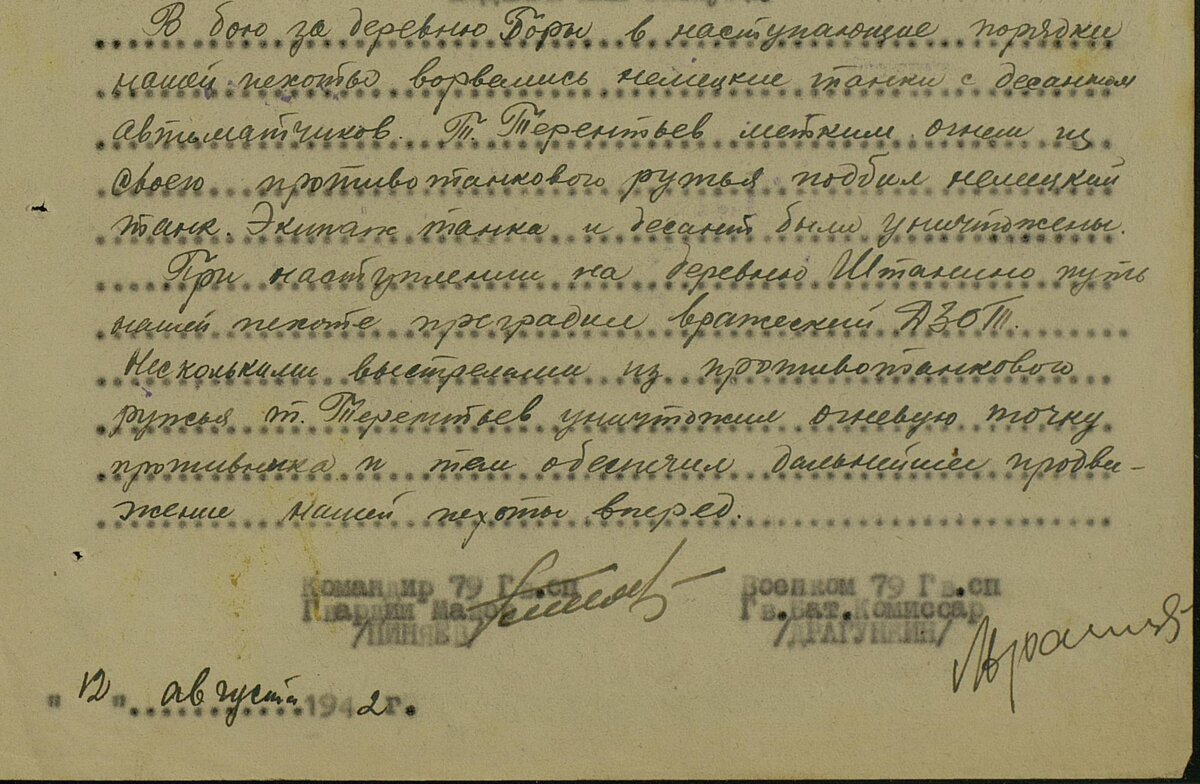 В бою за деревню Боры в наступающие порядки
нашей пехоты ворвались немецкие танки с десантом
автоматчиков. Т. Терентьев метким огнем из
своего противотанкового ружья подбил немецкий
танк. Экипаж танка и десант были уничтожены.
При наступлении на деревню Штанино путь
нашей пехоте преградил вражеский ДЗОТ.
Несколькими выстрелами из противотанкового
ружья т. Терентьев уничтожил огневую точку
противника и тем обеспечил дальнейшее продви-
жение нашей пехоты вперед.
Командир 79 Гв.сп Военком 79 Гв.сп
Гвардии Майор Гв.Бат.Комиссар
/ПИНЯЕВ/ /ДРАГУНКИН/
"12" августа 1942г.